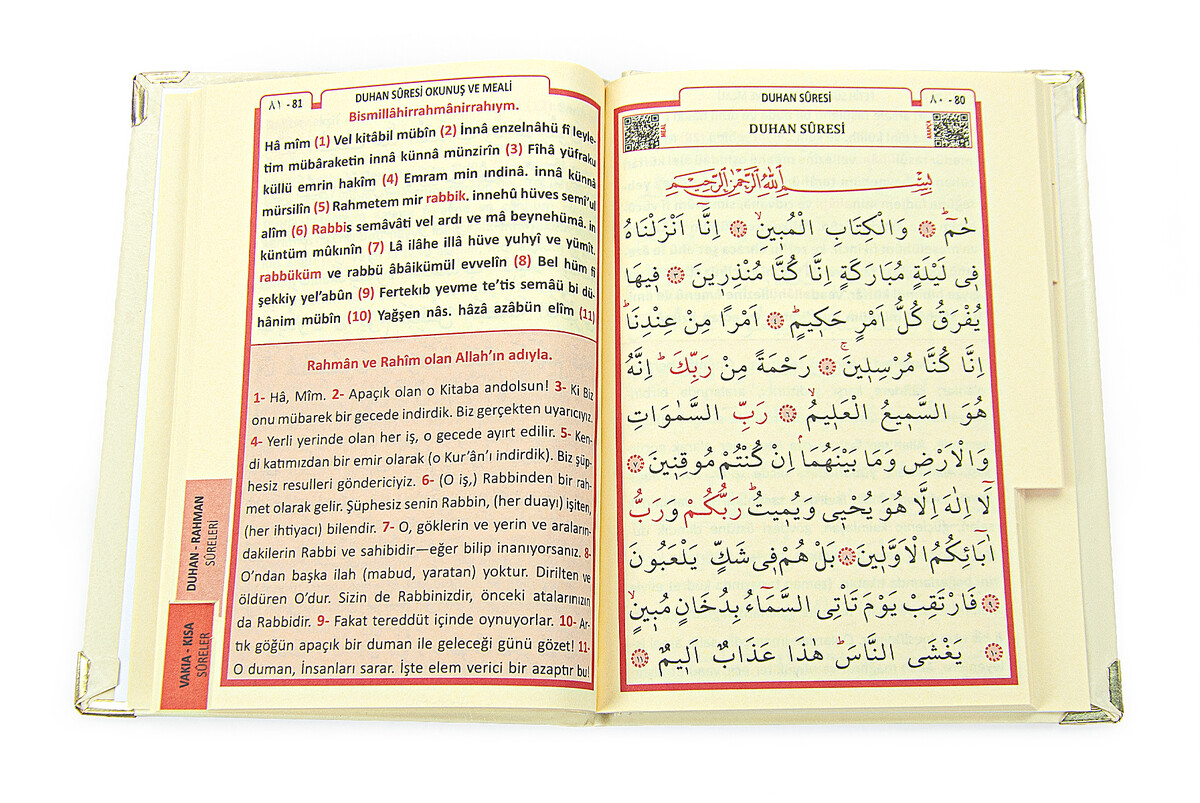 ٨١ - 81
DUHAN SÛRESİ OKUNUŞ VE MEALİ
Bismillâhirrahmânirrahıym.
Hâ mîm (1) Vel kitâbil mübîn (2) İnnâ enzelnâhü fî leyle-
tim mübâraketin innâ künnâ münzirîn (3) Fîhâ yüfraku
küllü emrin hakîm (4) Emram min ındinâ. innâ künnâ
mürsilîn (5) Rahmetem mir rabbik. innehû hüves semî'ul
alîm (6) Rabbis semâvâti vel ardı ve mâ beynehümâ. in
küntüm mûkınîn (7) Lâ ilâhe illâ hüve yuhyî ve yümît.
rabbüküm ve rabbü âbâikümül evvelîn (8) Bel hüm fî
şekkiy yel'abûn (9) Fertekıb yevme te'tis semâü bi dü-
hânim mübîn (10) Yağşen nâs. hâzâ azâbün elîm (11)
Rahmân ve Rahîm olan Allah'ın adıyla.
1- Hâ, Mîm. 2- Apaçık olan o Kitaba andolsun! 3- Ki Biz
onu mübarek bir gecede indirdik. Biz gerçekten uyarıcıyız.
4- Yerli yerinde olan her iş, o gecede ayırt edilir. 5- Ken-
di katımızdan bir emir olarak (o Kur'ân'ı indirdik). Biz şüp-
hesiz resulleri göndericiyiz. 6- (O iş,) Rabbinden bir rah-
met olarak gelir. Şüphesiz senin Rabbin, (her duayı) işiten,
(her ihtiyacı) bilendir. 7- O, göklerin ve yerin ve araların-
dakilerin Rabbi ve sahibidir—eğer bilip inanıyorsanız. 8-
O'ndan başka ilah (mabud, yaratan) yoktur. Dirilten ve
öldüren O'dur. Sizin de Rabbinizdir, önceki atalarınızın
da Rabbidir. 9- Fakat tereddüt içinde oynuyorlar. 10- Ar-
tık göğün apaçık bir duman ile geleceği günü gözet! 11-
O duman, İnsanları sarar. İşte elem verici bir azaptır bu!
DUHAN - RAHMAN
SÛRELERİ
VAKIA - KISA
SÛRELER
DUHAN SÛRESİ
٨٠ - 80
MEAL
DUHAN SÛRESİ
ARAPÇA
بِسْمِ اللّٰهِ الرَّحْمٰنِ الرَّحِيمِ
حٰمٓ ۜ ﴿١﴾ وَالْكِتَابِ الْمُبِينِ ۙ ﴿٢﴾ اِنَّٓا اَنْزَلْنَاهُ
فِي لَيْلَةٍ مُبَارَكَةٍ اِنَّا كُنَّا مُنْذِرِينَ ﴿٣﴾ فِيهَا
يُفْرَقُ كُلُّ اَمْرٍ حَكِيمٍ ۜ ﴿٤﴾ اَمْرًا مِنْ عِنْدِنَا ۜ
اِنَّا كُنَّا مُرْسِلِينَ ۚ ﴿٥﴾ رَحْمَةً مِنْ رَبِّكَ ۜ اِنَّهُ
هُوَ السَّمِيعُ الْعَلِيمُ ۙ ﴿٦﴾ رَبِّ السَّمٰوَاتِ
وَالْاَرْضِ وَمَا بَيْنَهُمَا ۢ اِنْ كُنْتُمْ مُوقِنِينَ ﴿٧﴾
لَٓا اِلٰهَ اِلَّا هُوَ يُحْيِي وَيُمِيتُ ۜ رَبُّكُمْ وَرَبُّ
اٰبَٓائِكُمُ الْاَوَّلِينَ ﴿٨﴾ بَلْ هُمْ فِي شَكٍّ يَلْعَبُونَ
﴿٩﴾ فَارْتَقِبْ يَوْمَ تَأْتِي السَّمَٓاءُ بِدُخَانٍ مُبِينٍ ۙ
﴿١٠﴾ يَغْشَى النَّاسَ ۜ هٰذَا عَذَابٌ اَلِيمٌ ﴿١١﴾